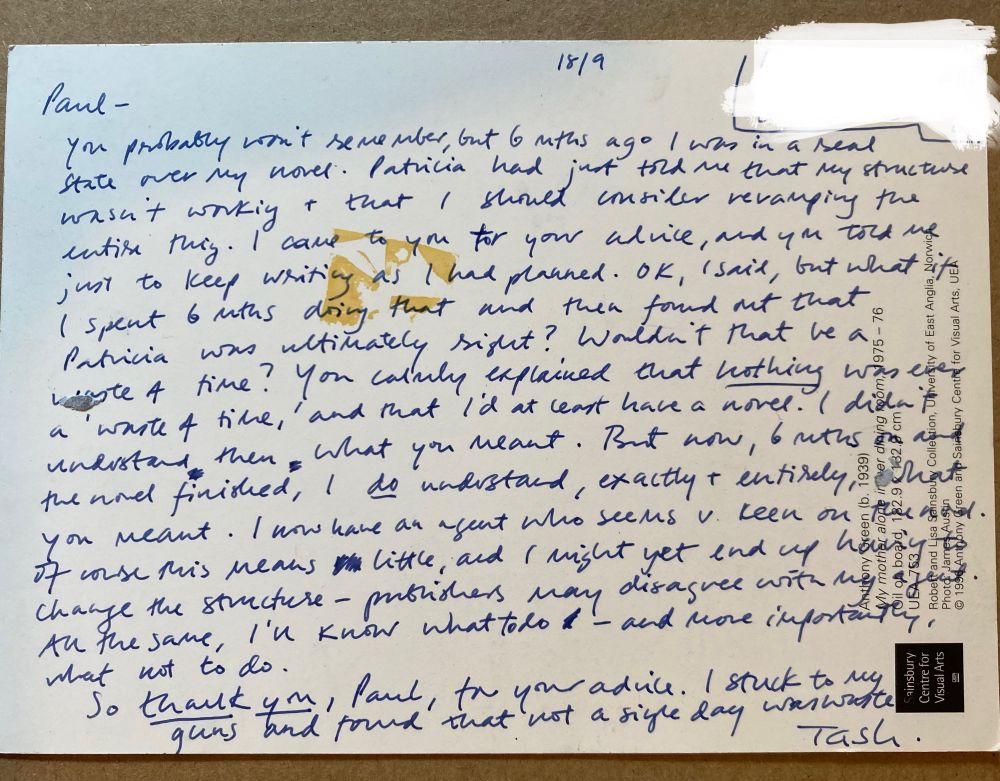 18/9
Paul –
You probably won't remember, but 6 mths ago I was in a real
state over my novel. Patricia had just told me that my structure
wasn't working + that I should consider revamping the
entire thing. I came to you for your advice, and you told me
just to keep writing as I had planned. OK, I said, but what if
I spent 6 mths doing that and then found out that
Patricia was ultimately right? Wouldn't that be a
waste of time? You calmly explained that nothing was ever
a 'waste of time,' and that I'd at least have a novel. I didn't
understand then what you meant. But now, 6 mths on and
the novel finished, I do understand, exactly + entirely, what
you meant. I now have an agent who seems v. keen on
Of course this means little, and I might yet end up having to
change the structure – publishers may disagree with my
All the same, I'll know what to do – and more importantly,
what not to do.
So thank you, Paul, for your advice. I stuck to my
guns and found that not a single day was waste
Tash.
Anthony Green (b. 1939)
My mother alone in her dining room, 1975 – 76
Oil on board, 182.9 132.0 cm
UEA 753
Robert and Lisa Sainsbury Collection, University of East Anglia, Norwich
Photo: James Austin
© 1998 Anthony Green and Sainsbury Centre for Visual Arts, UEA
Sainsbury
Centre for
Visual Arts